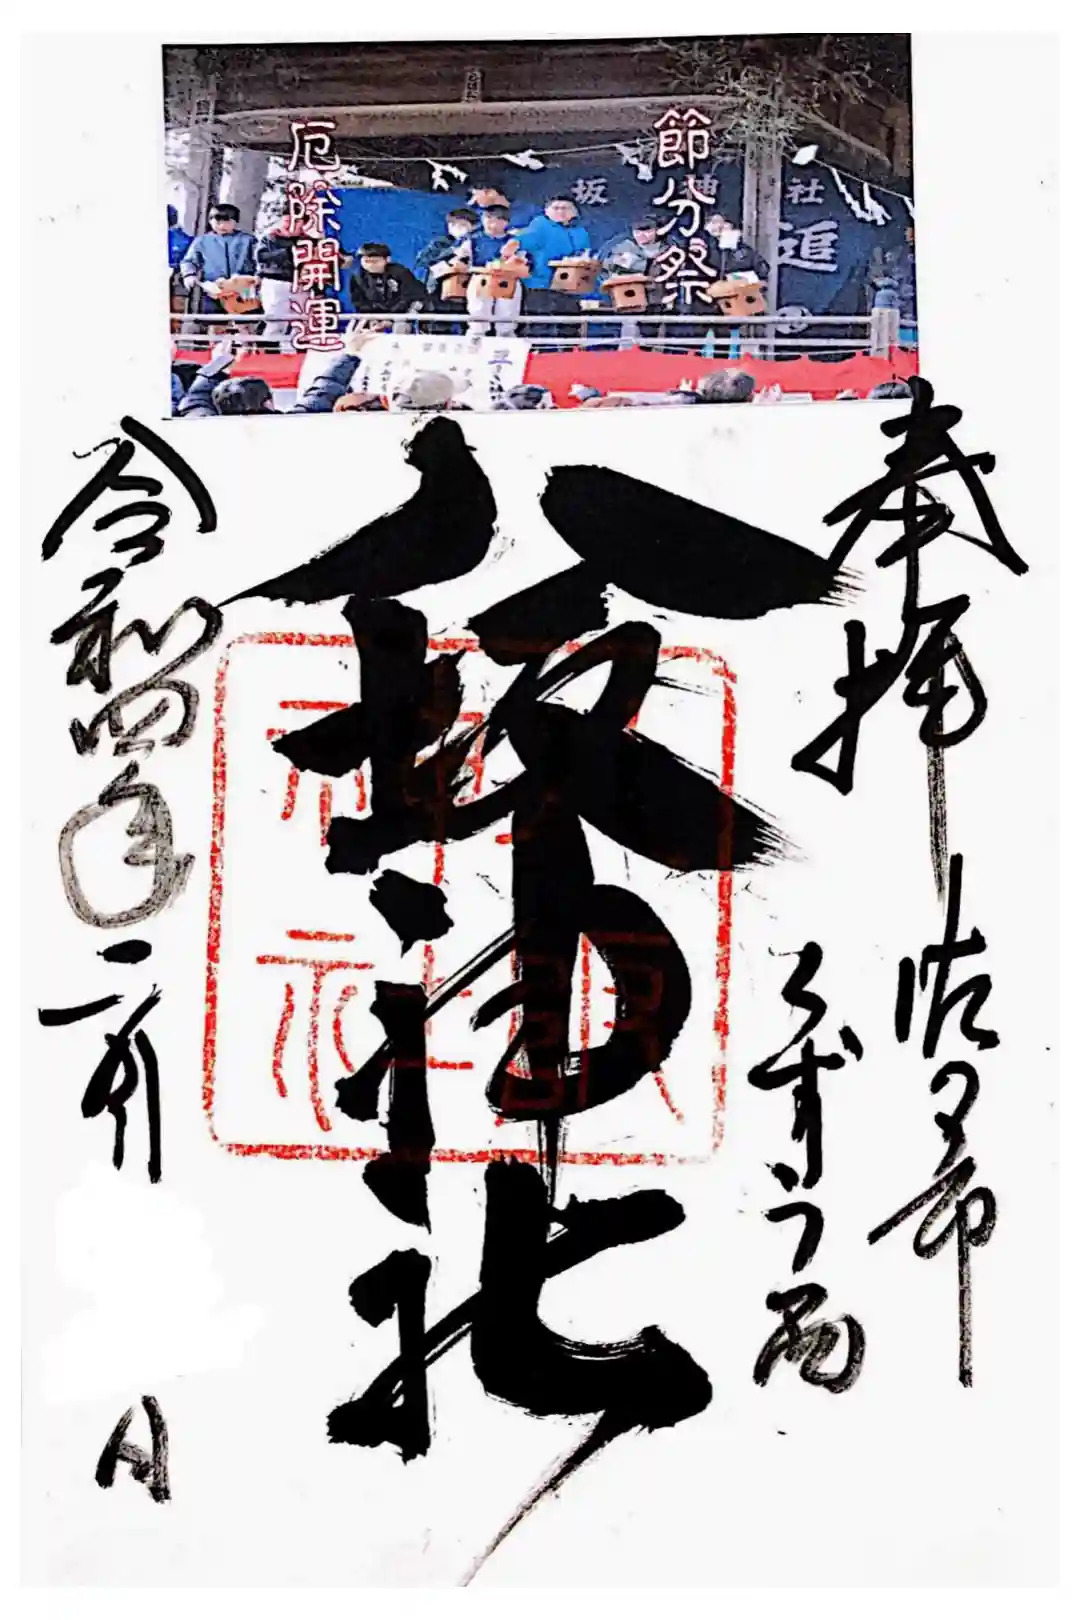 節分祭
厄除開運
坂神社
追
奉拝
佐久市
八坂神社
令和四年二月
日